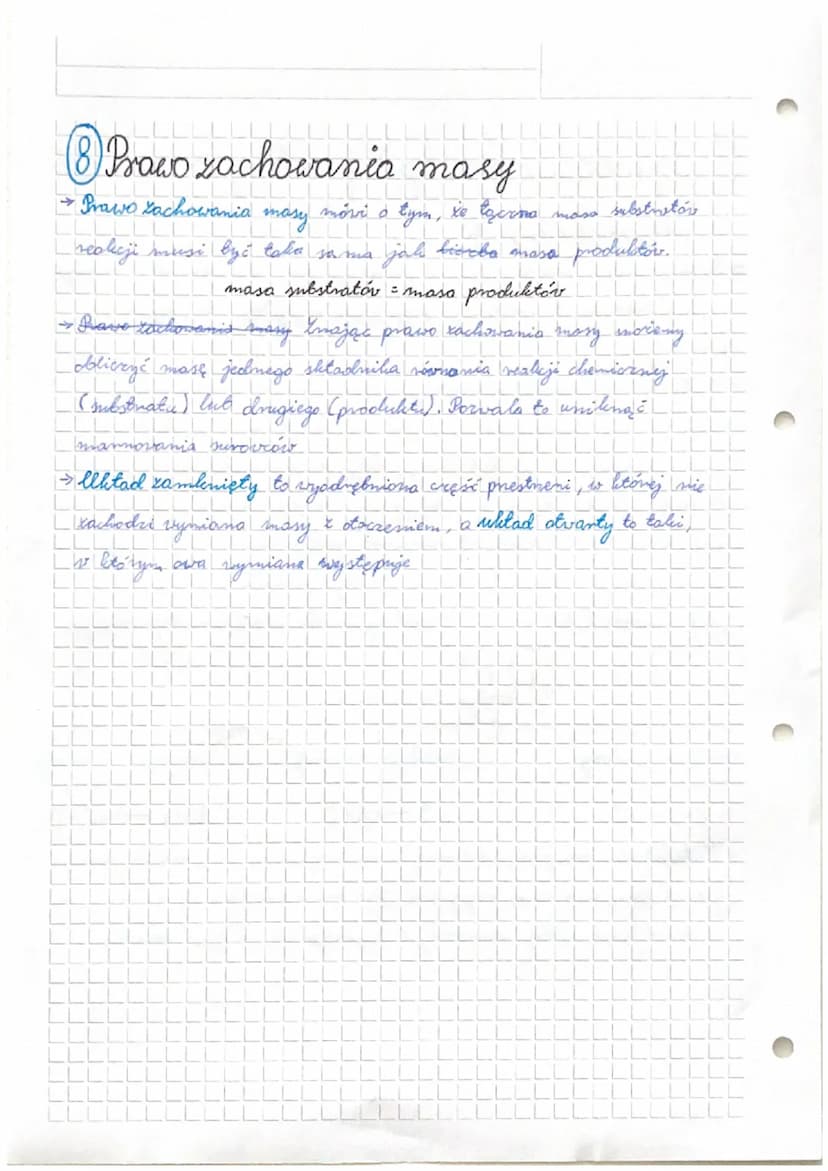 8 Prawo zachowania masy
→ Prawo zachowania masy mówi o tym, że łączna masa substratów
reakcji musi być taka sama jak liczba masa produktów.
masa substratów = masa produktów
→ Prawo zachowania masy Znając prawo zachowania masy możemy
obliczyć masę jednego składnika równania reakcji chemicznej
(substratu) lub drugiego (produktu). Pozwala to uniknąć
marnowania surowców
→ Układ zamknięty to wyodrębniona część przestrzeni, w której nie
zachodzi wymiana masy z otoczeniem, a układ otwarty to taki,
w którym owa wymiana występuje